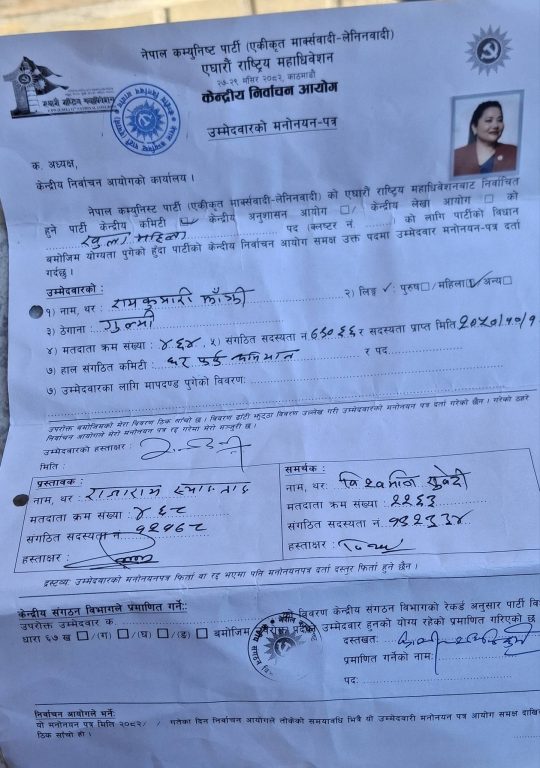 नेपाल कम्युनिष्ट पार्टी (एकीकृत मार्क्सवादी-लेनिनवादी)
एघारौं राष्ट्रिय महाधिवेशन
२७-२९ मंसिर २०८२, काठमाडौं
केन्द्रीय निर्वाचन आयोग
उम्मेदवारको मनोनयन-पत्र
क. अध्यक्ष,
केन्द्रीय निर्वाचन आयोगको कार्यालय ।
नेपाल कम्युनिस्ट पार्टी (एकीकृत मार्क्सवादी-लेनिनवादी) को एघारौं राष्ट्रिय महाधिवेशनबाट निर्वाचित
हुने पार्टी केन्द्रीय कमिटी केन्द्रीय अनुशासन आयोग □/ केन्द्रीय लेखा आयोग □ को
खुला महिला पद (क्लष्टर नं. ) को लागि पार्टीको विधान
बमोजिम योग्यता पुगेको हुँदा पार्टीको केन्द्रीय निर्वाचन आयोग समक्ष उक्त पदमा उम्मेदवार मनोनयन-पत्र दर्ता
गर्दछु ।
उम्मेदवारको :
१) नाम, थर : रामकुमारी झाँक्री २) लिङ्ग ✓: पुरुष□/ महिला☑/अन्य□
३) ठेगाना : गुल्मी
४) मतदाता क्रम संख्या : ४६४ ५) संगठित सदस्यता नं ६३०६६ र सदस्यता प्राप्त मिति २०५०/१०/१
७) हाल संगठित कमिटी : र पद
७) उम्मेदवारका लागि मापदण्ड पुगेको विवरण:
उपरोक्त बमोजिमको मेरा विवरण ठिक साँचो छ । विवरण ढाँटी झुठ्ठा विवरण उल्लेख गरी उम्मेदवारको मनोनयन पत्र दर्ता गरेको छैन । गरेको ठहरे
निर्वाचन आयोगले मेरो मनोनयन पत्र रद्द गरेमा मेरो मन्जुरी छ ।
उम्मेदवारको हस्ताक्षर :
मिति :
प्रस्तावक :
नाम, थर : राजाराम
मतदाता क्रम संख्या : ४६८
संगठित सदस्यता नं १२७६८
हस्ताक्षर :
समर्थक :
नाम, थर: सुवेदी
मतदाता क्रम संख्या : २२६३
संगठित सदस्यता नं. १३२३३४
हस्ताक्षर :
द्रस्टव्य: उम्मेदवारको मनोनयनपत्र फिर्ता वा रद्द भएमा पनि मनोनयनपत्र दर्ता दस्तुर फिर्ता हुने छैन ।
केन्द्रीय संगठन विभागले प्रमाणित गर्ने:
उपरोक्त उम्मेदवार क. को विवरण केन्द्रीय संगठन विभागको रेकर्ड अनुसार पार्टी वि
धारा ६७ ख □/(ग) □/(घ) □/(ङ) □ बमोजिम उपरोक्त प्रदेशको उम्मेदवार हुनको योग्य रहेको प्रमाणित गरिएको छ
दस्तखत:
प्रमाणित गर्नेको नाम:
पद:
निर्वाचन आयोगले भर्ने:
यो मनोनयन पत्र मिति २०८२/ / गतेका दिन निर्वाचन आयोगले तोकेको समयावधि भित्रै यो उम्मेदवारी मनोनयन पत्र आयोग समक्ष दाखि
ठिक साँचो हो ।